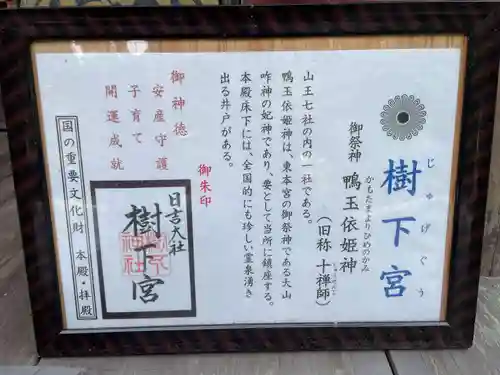 樹下宮
じゅげぐう
御祭神 鴨玉依姫神
かもたまよりひめのかみ
(旧称 十禅師)
山王七社の内の一社である。
鴨玉依姫神は、東本宮の御祭神である大山
咋神の妃神であり、妻として当所に鎮座する。
本殿床下には、全国的にも珍しい霊泉湧き
出る井戸がある。
御神徳
安産守護
子育て
開運成就
御朱印
日吉大社
樹下宮
国の重要文化財 本殿・拝殿